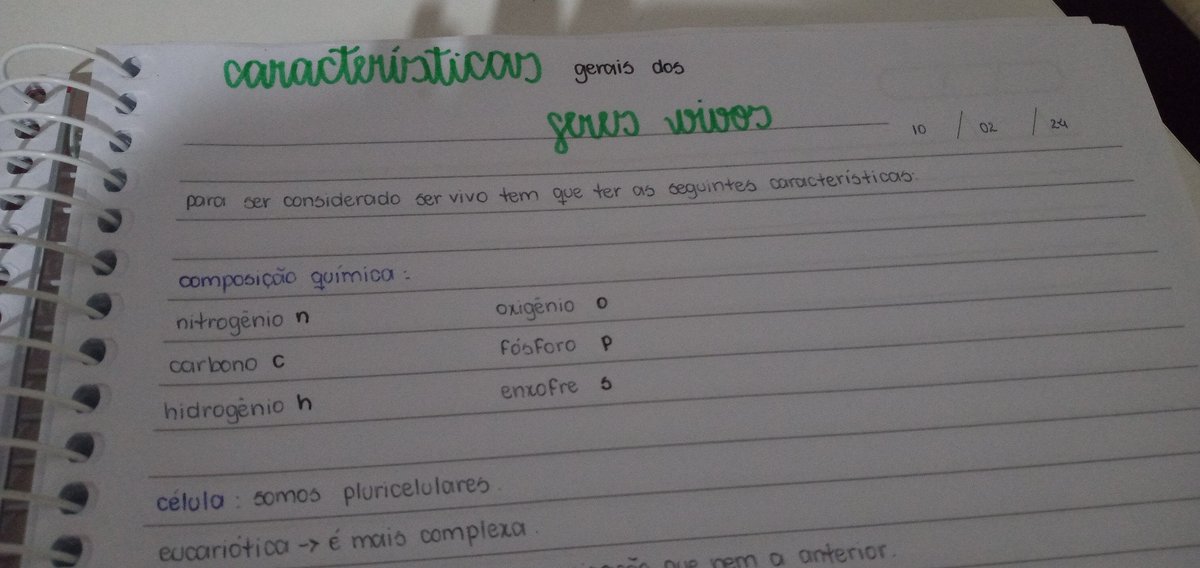 características gerais dos
seres vivos
10 / 02 / 24
para ser considerado ser vivo tem que ter as seguintes características:
composição química:
nitrogênio n
oxigênio o
carbono c
fósforo p
hidrogênio h
enxofre s
célula: somos pluricelulares.
eucariótica → é mais complexa.
que nem a anterior.